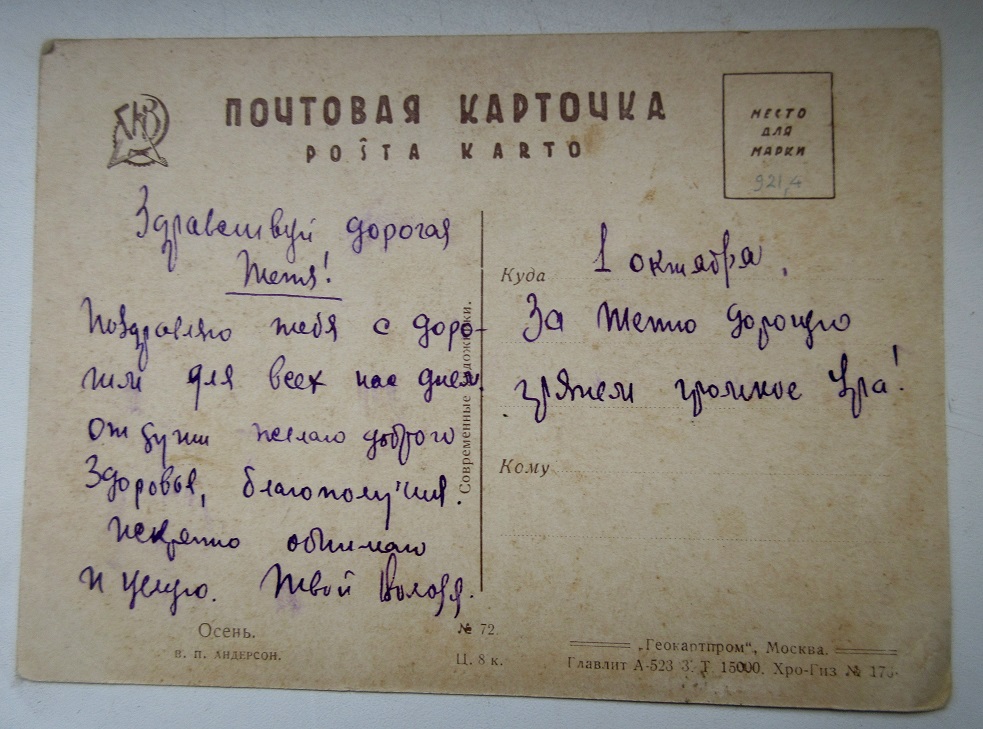 ПОЧТОВАЯ КАРТОЧКА
POŜTA KARTO
МЕСТО
ДЛЯ
МАРКИ
921,4
Здравствуй дорогая
Тетя!
Поздравляю тебя с доро-
гим для всех нас днем
От души желаю доброго
Здоровья, благополучия.
Искренно обнимаю
и целую. Твой Володя.
Современные художники.
Куда
1 октября,
За тетю дорогую
грянем громкое Ура!
Кому
Осень.
В. П. АНДЕРСОН.
№ 72.
Ц. 8 к.
„Геокартпром“, Москва.
Главлит А-523 З. Т. 15000. Хро-Гиз №